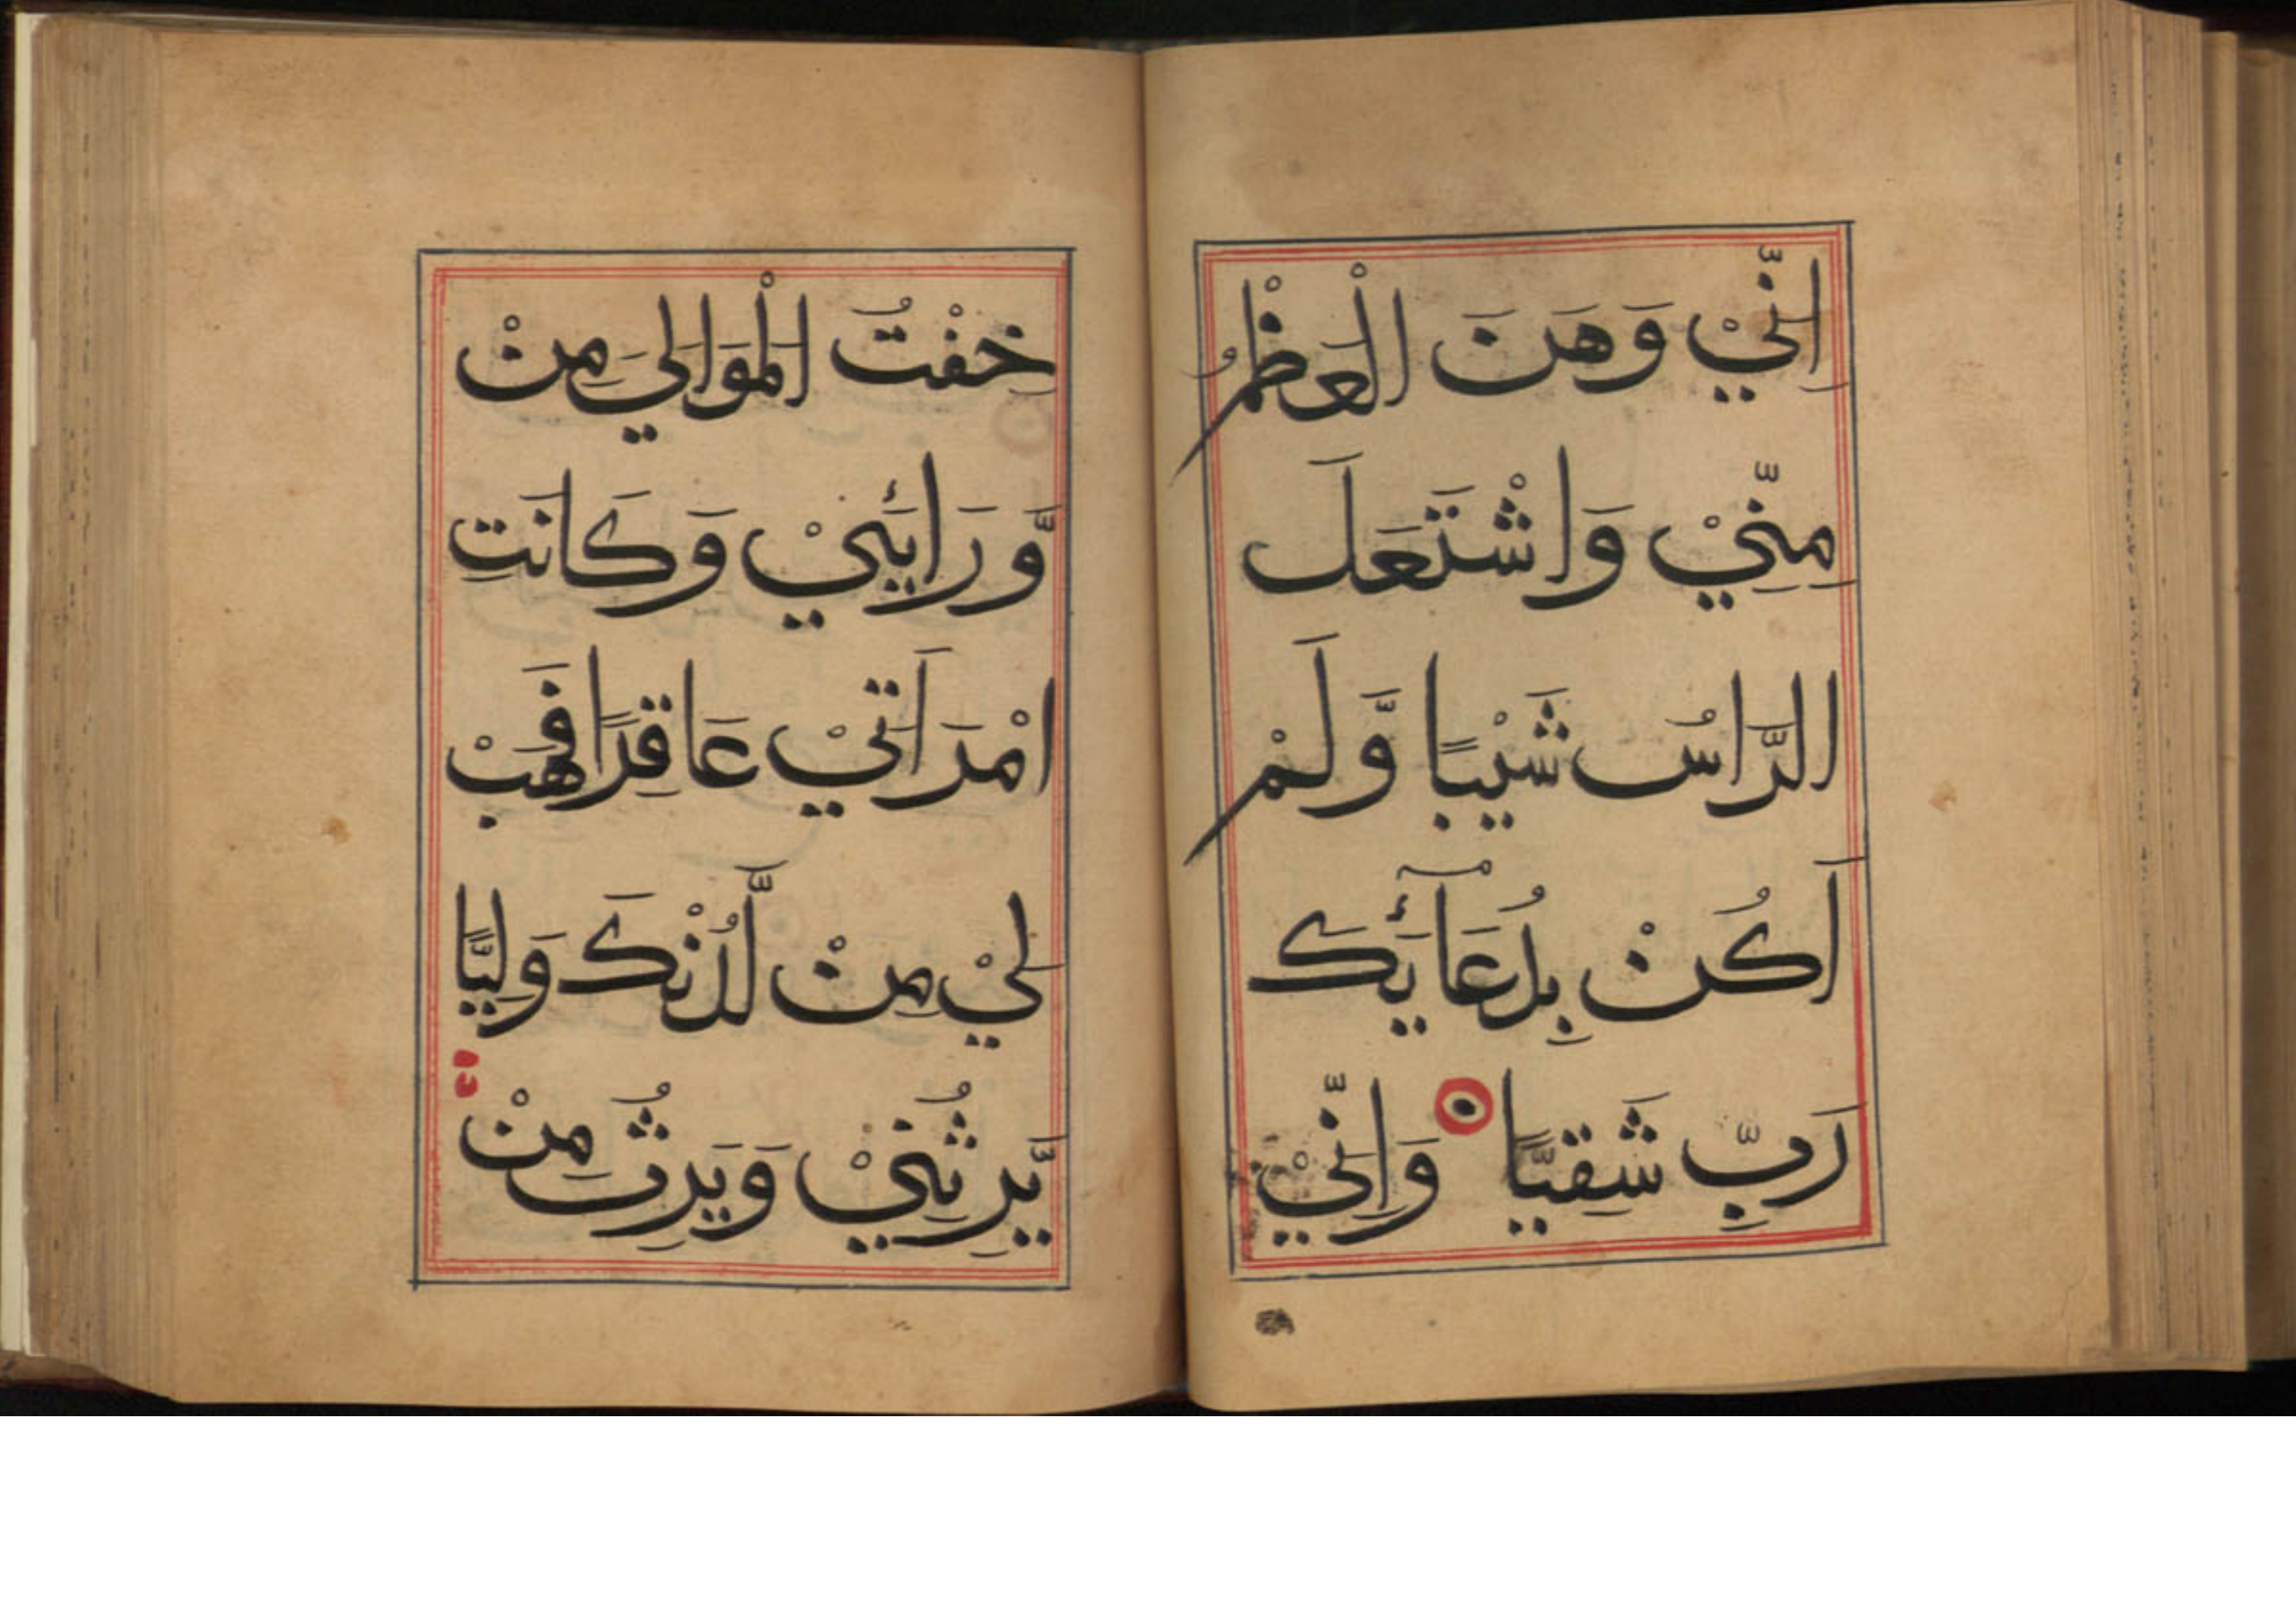 اِنِّيْ وَهَنَ الْعَظْمُ
مِنِّيْ وَاشْتَعَلَ
الرَّاسُ شَيْبًا وَّلَمْ
اَكُنْ بِدُعَآئِكَ
رَبِّ شَقِيًّا وَاِنِّيْ
خِفْتُ الْمَوَالِيَ مِنْ
وَّرَائَِيْ وَكَانَتِ
امْرَاَتِيْ عَاقِرًا فَهَبْ
لِيْ مِنْ لَّدُنْكَ وَلِيًّا
يَّرِثُنِيْ وَيَرِثُ مِنْ